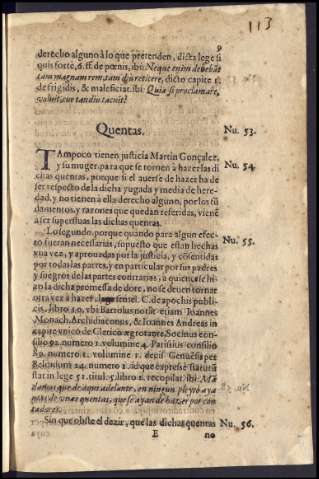 113
9
derecho alguno à lo que pretenden, dicta lege si
quis forte, 6. ff. de pœnis, ibi: Neque enim debebat
tam magnam rem, tam diu reticere, dicto capite 1.
de frigidis, & maleficiat. ibi: Quia si proclamare,
voluit, cur tandiu tacuit?
Quentas.
Nu. 53.
TAmpoco tienen justicia Martin Gonçalez,
Nu. 54.
y su muger, para que se tornen à hazer las di
chas quentas, porque si el auerse de hazer ha de
ser respecto de la dicha yugada y media de here-
dad, y no tienen a ella derecho alguno, por los fũ
damentos, y razones que quedan referidas, vienẽ
a ser superfluas las dichas quentas.
Lo segundo, porque quando para algun efec-
Nu. 55.
to fueran necessarias, supuesto que estan hechas
vna vez, y aprouadas por la justicia, y cõsentidas
por todas las partes, y en particular por sus padres
y suegros de las partes contrarias, a quien se hi-
zo la dicha promessa de dote, no se deuen tornar
otra vez à hazer, lege semel. C. de apochis publi-
cis, libro 10. vbi Bartolus notat etiam Ioannes
Monach. Archidiaconus, & Ioannes Andreas in
capite vnico de Clerico ægrotante, Socinus con-
silio 92. numero 1. volumine 4. Parisius consilio
numero 1. volumine 1. decis. Genuēsis per
Belonium 24. numero 1. idque expressè statutũ
stat in lege 51. titul. 5. libro 2. recopilat. ibi: Mã
damos que de aqui adelante, en ningun pleyto aya
mas de vnas quentas, que se ayan de hazer por con
tadores.
Sin que obste el dezir, que las dichas quentas
Nu. 56.
E
no